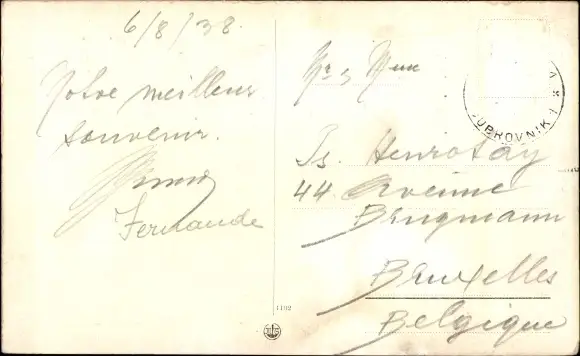 6/8/38.
Notre meilleur
souvenir.
Fernande
Mr & Mme
Is. Henrotay
44 Avenue
Brugmann
Bruxelles
Belgique
DUBROVNIK 1
1192